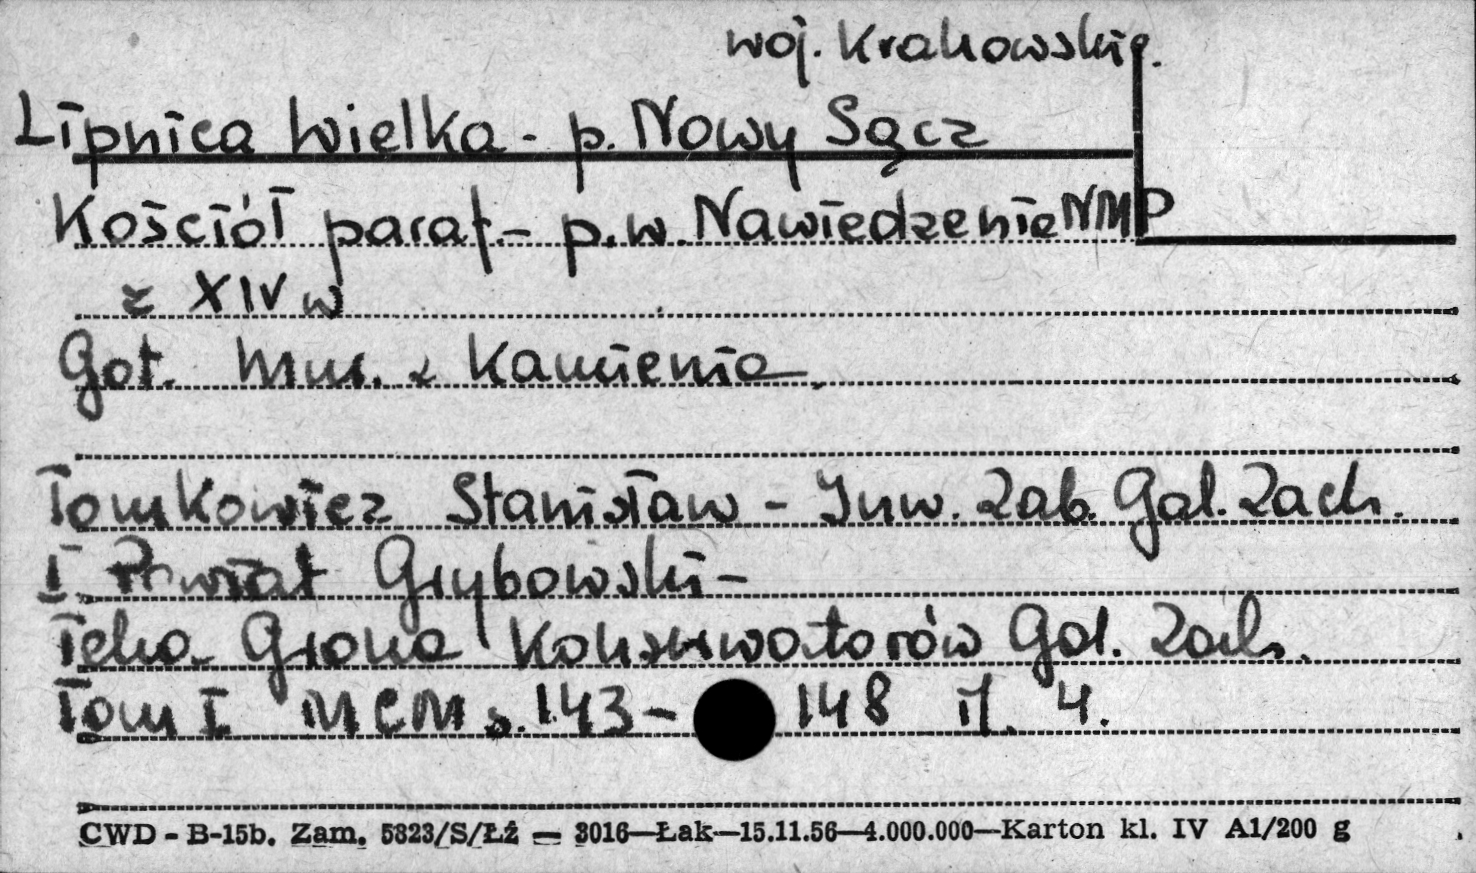 woj. Krakowskie.
Lipnica Wielka - p. Nowy Sącz
Kościół paraf. - p.w. Nawiedzenie NMP
z XIV w
Got. Mur. z Kamienia.
Tomkowicz Stanisław - Inw. Zab. Gal. Zach.
I. Powiat Grybowski -
Teka Grona Konserwatorów Gal. Zach.
Tom I MCM s. 143 - 148 il. 4.
CWD - B-15b. Zam. 5823/S/ŁŻ — 3016—Łak—15.11.56—4.000.000—Karton kl. IV A1/200 g